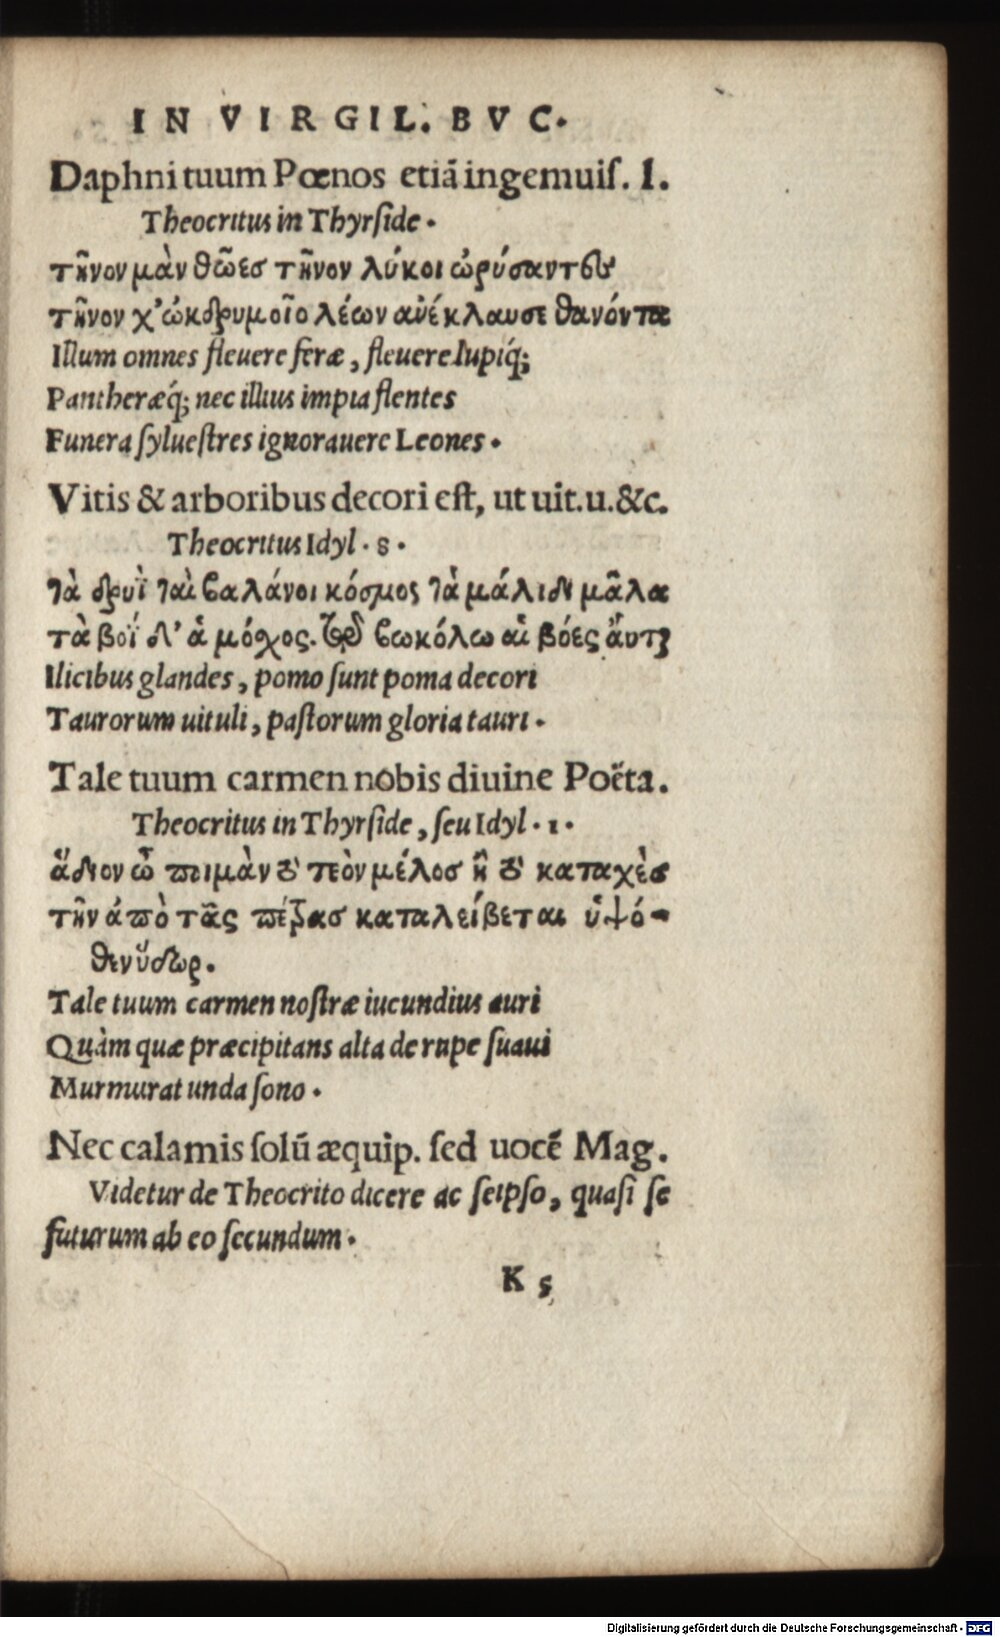 IN VIRGIL. BVC.
Daphni tuum Pœnos etiā ingemuiſ. l.
Theocritus in Thyrſide.
τῆνον μὰν θῶεσ τῆνον λύκοι ὠρύσαντο
τῆνον χ’ὠκ δρυμοῖο λέων ἀνέκλαυσε θανόντα
Illum omnes fleuere feræ, fleuere lupiq́;
Pantheræq́; nec illius impia flentes
Funera ſylueſtres ignorauere Leones.
Vitis & arboribus decori eſt, ut uit. u. &c.
Theocritus Idyl. 8.
τὰ δρυῒ ταὶ βαλάνοι κόσμος τᾷ μάλιδι μᾶλα
τὰ βοῒ δ’ ἁ μόχος. τῷ βωκόλω αἱ βόες αὐτ
Ilicibus glandes, pomo ſunt poma decori
Taurorum uituli, paſtorum gloria tauri.
Tale tuum carmen nobis diuine Poëta.
Theocritus in Thyrſide, ſeu Idyl. 1.
ἅδιον ὦ ποιμὰν τὸ τεὸν μέλοσ ἢ τὸ καταχὲσ
τῆν ἀπὸ τᾶς πέτρασ καταλείβεται ὑψό-
θεν ὕδωρ.
Tale tuum carmen noſtræ iucundius auri
Quàm quæ præcipitans alta de rupe ſuaui
Murmurat unda ſono.
Nec calamis ſolū æquip. ſed uocē Mag.
Videtur de Theocrito dicere ac ſeipſo, quaſi ſe
futurum ab eo ſecundum.
K 5
Digitalisierung gefördert durch die Deutsche Forschungsgemeinschaft - DFG